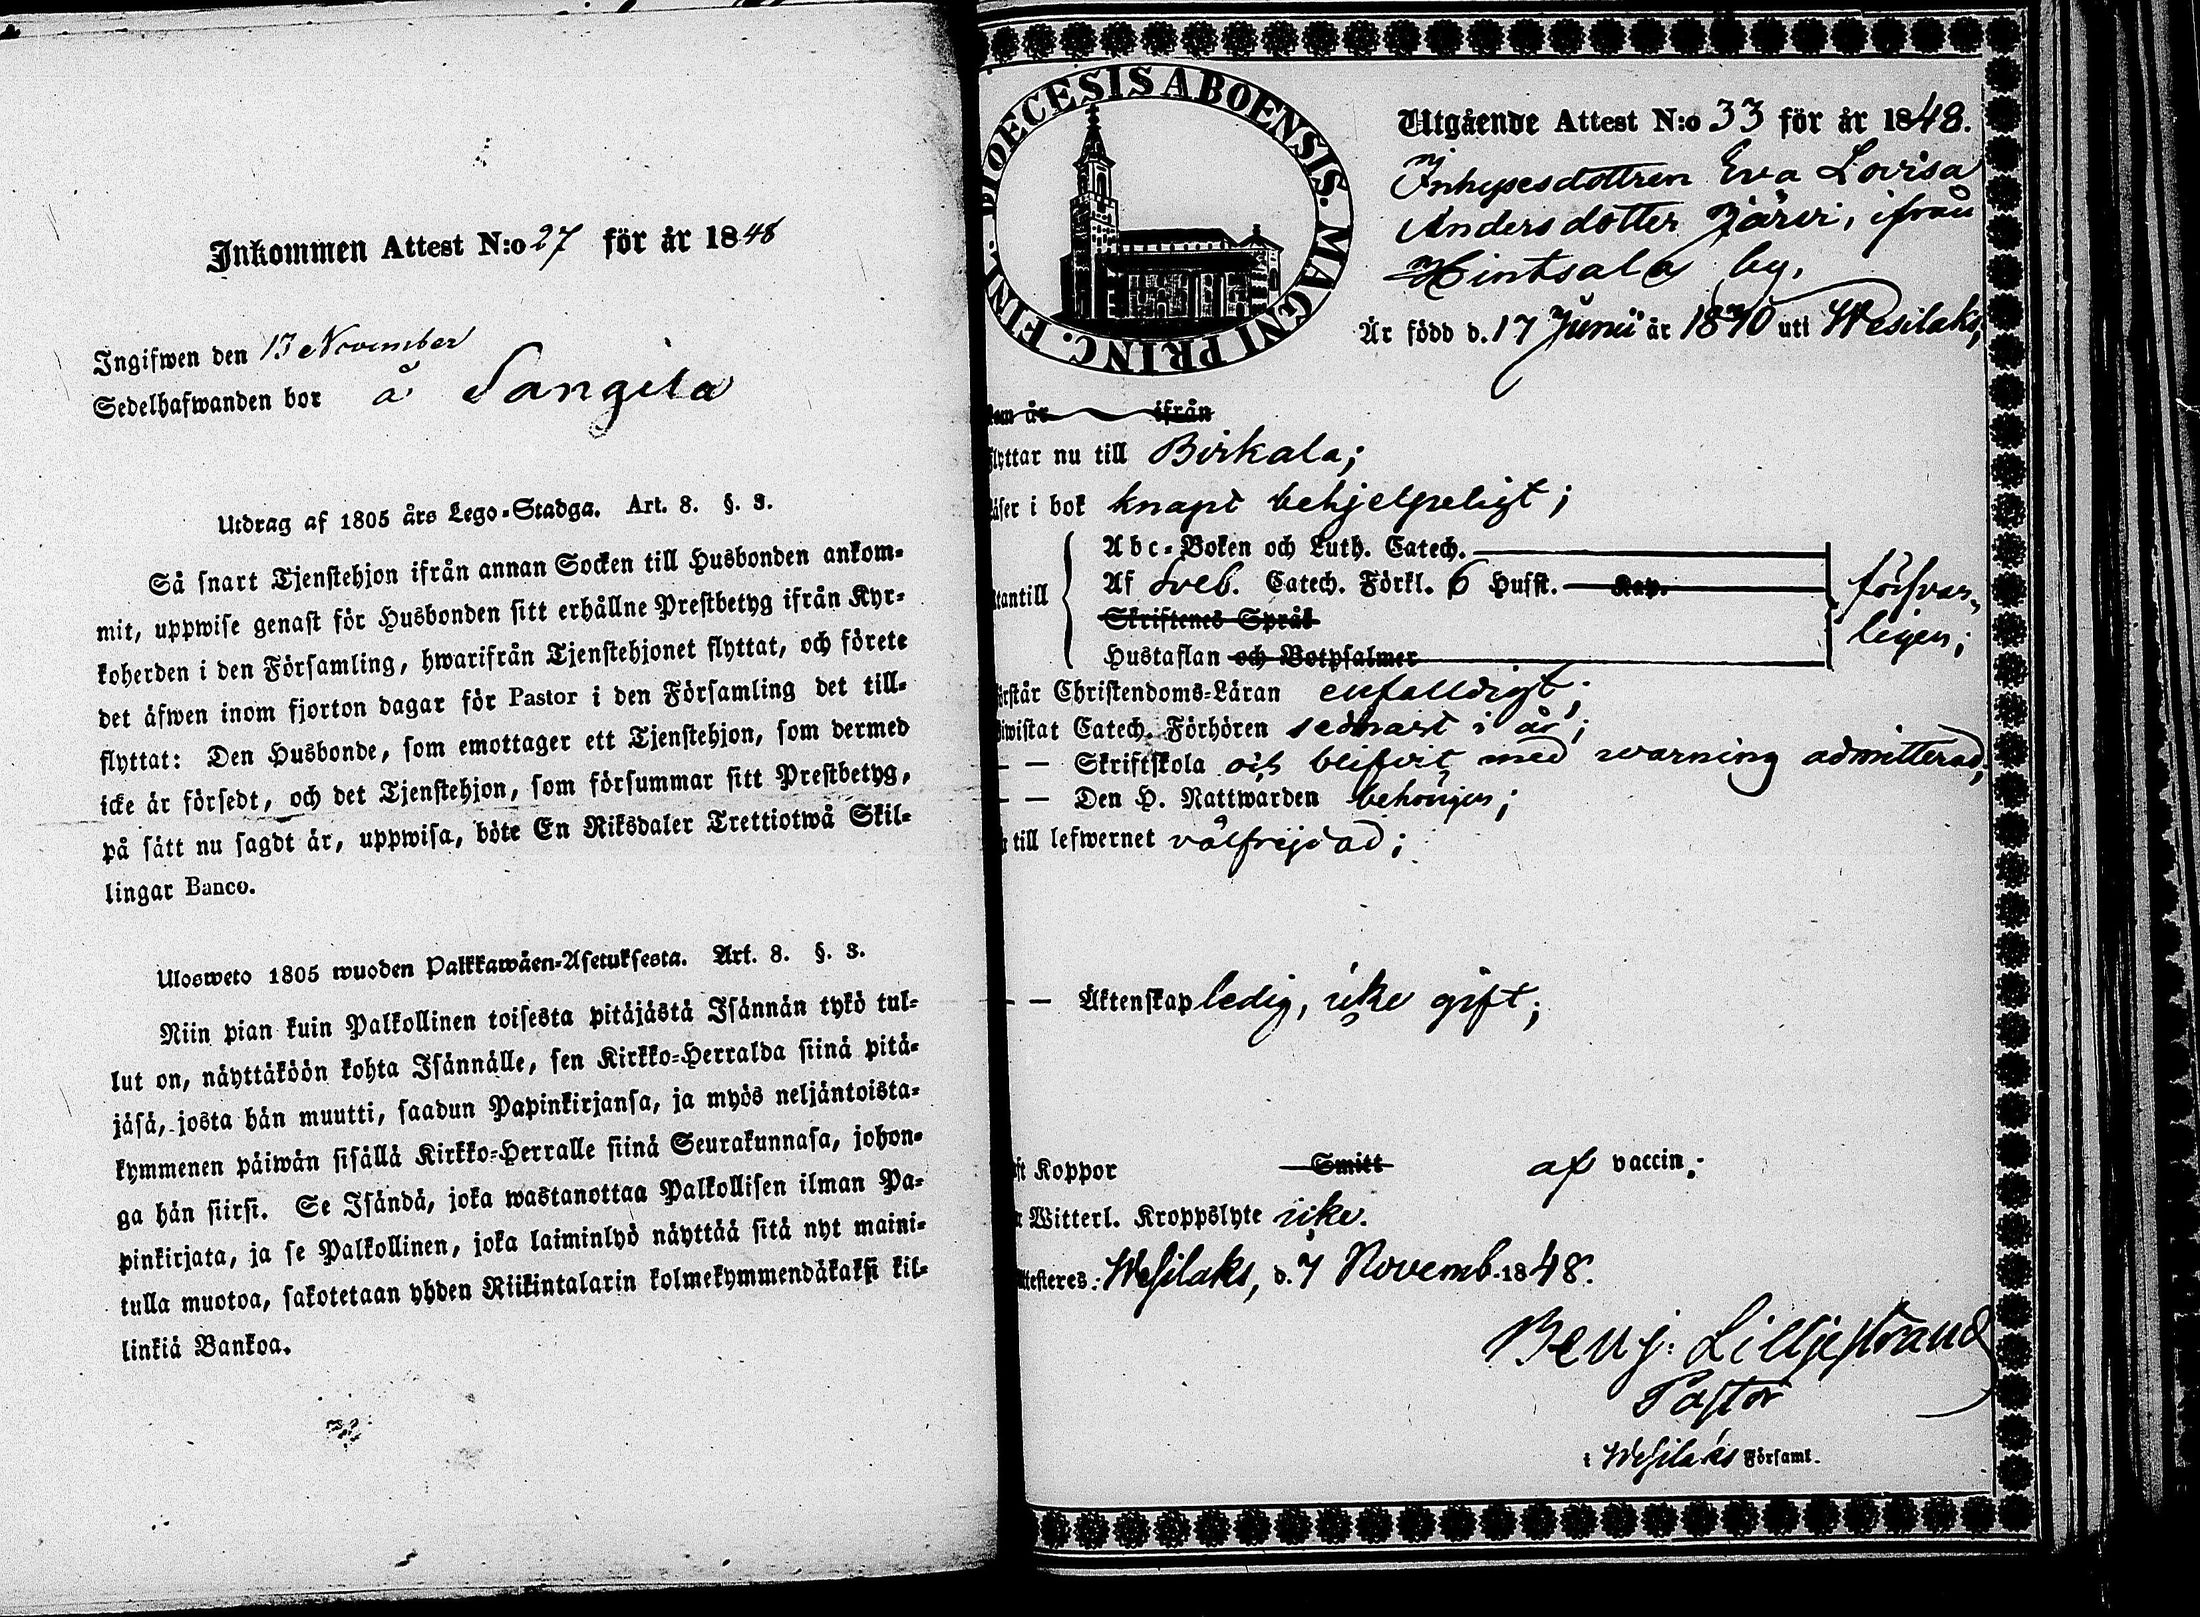 Inkommen Attest N:o 27 för år 1848
Ingifwen den 13 November
Sedelhafwanden bor å Sangila
Utdrag af 1805 års Lego-Stadga. Art. 8. §. 3.
Så snart Tjenstehjon ifrån annan Socken till Husbonden ankom-
mit, uppwise genast för Husbonden sitt erhållne Prestbetyg ifrån Kyr-
koherden i den Församling, hwarifrån Tjenstehjonet flyttat, och förete
det äfwen inom fjorton dagar för Pastor i den Församling det till-
flyttat: Den Husbonde, som emottager ett Tjenstehjon, som dermed
icke är försedt, och det Tjenstehjon, som försummar sitt Prestbetyg,
på sätt nu sagdt är, uppwisa, böte En Riksdaler Trettiotwå Skil-
lingar Banco.
Ulosweto 1805 wuoden Palkkawäen-Asetuksesta. Art. 8. §. 3.
Niin pian kuin Palkollinen toisesta pitäjästä Isännän tykö tul-
lut on, näyttäköön kohta Isännälle, sen Kirkko-Herralda siinä pitä-
jäsä, josta hän muutti, saadun Papinkirjansa, ja myös neljäntoista-
kymmenen päiwän sisällä Kirkko-Herralle siinä Seurakunnasa, johon-
ga hän siirsi. Se Isändä, joka wastanottaa Palkollisen ilman Pa-
pinkirjata, ja se Palkollinen, joka laiminlyö näyttää sitä nyt maini-
tulla muotoa, sakotetaan yhden Riikintalarin kolmekymmendäkaksi kil-
linkiä Bankoa.
DIOECESIS ABOENSIS. MAGNI PRINC. FINL.
Utgående Attest N:o 33 för år 1848.
Inhysesdottren Eva Lovisa
Andersdotter Järvi, ifrån
Hintsala by,
Är född d. 17 Junii år 1830 uti Wesilaks,
kom år ifrån
flyttar nu till Birkala;
läser i bok knapt behjelpeligt;
utantill
Abc-Boken och Luth. Catech.
Af Sveb. Catech. Förkl. 6 Hufst. Kap.
Skriftenes Språk
Hustaflan och Botpsalmer
försvar-
ligen;
förstår Christendoms-Läran enfalldigt;
biwistat Catech. Förhören sednast i år;
— — Skriftskola och blifvit med warning admitterad;
— — Den H. Nattwarden behörigen;
till lefwernet välfrejdad;
— — Äktenskap ledig, icke gift;
Koppor Smitt af vaccin.
Witterl. Kroppslyte icke.
Attesteres: Wesilaks, d. 7 Novemb. 1848.
Benj: Lilljestrand
Pastor
i Wesilaks Församl.